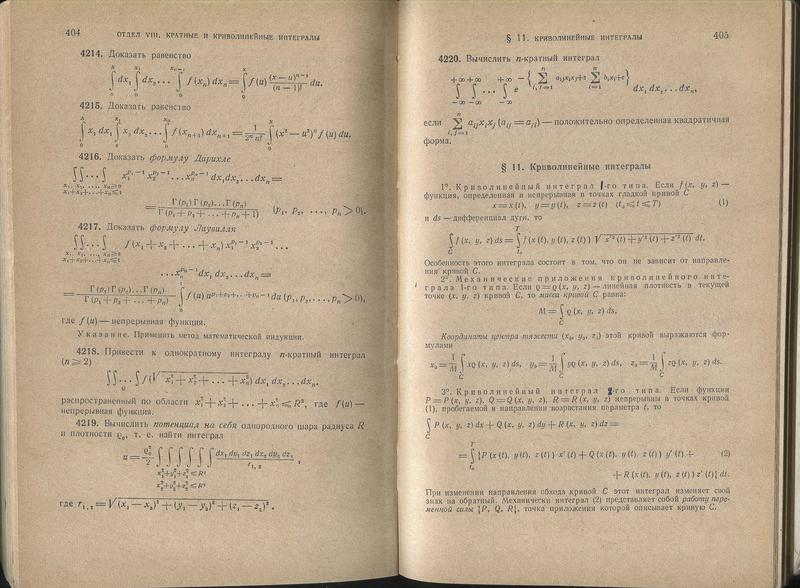 404 ОТДЕЛ VIII. КРАТНЫЕ И КРИВОЛИНЕЙНЫЕ ИНТЕГРАЛЫ
4214. Доказать равенство
∫₀ˣ dx₁ ∫₀^{x₁} dx₂ ... ∫₀^{x_{n−1}} f(xₙ) dxₙ = ∫₀ˣ f(u) (x−u)^{n−1}/(n−1)! du.
4215. Доказать равенство
∫₀ˣ x₁ dx₁ ∫₀^{x₁} x₂ dx₂ ... ∫₀^{xₙ} f(x_{n+1}) dx_{n+1} = 1/(2ⁿ n!) ∫₀ˣ (x² − u²)ⁿ f(u) du.
4216. Доказать формулу Дирихле
∫∫...∫ x₁^{p₁−1} x₂^{p₂−1} ... xₙ^{pₙ−1} dx₁ dx₂ ... dxₙ =
x₁, x₂, ..., xₙ ≥ 0
x₁+x₂+...+xₙ ≤ 1
= Γ(p₁) Γ(p₂)...Γ(pₙ) / Γ(p₁ + p₂ + ... + pₙ + 1) (p₁, p₂, ..., pₙ > 0).
4217. Доказать формулу Лиувилля
∫∫...∫ f(x₁ + x₂ + ... + xₙ) x₁^{p₁−1} x₂^{p₂−1} ...
x₁, x₂, ..., xₙ ≥ 0
x₁+x₂+...+xₙ ≤ 1
... xₙ^{pₙ−1} dx₁ dx₂ ... dxₙ =
= Γ(p₁) Γ(p₂)...Γ(pₙ) / Γ(p₁ + p₂ + ... + pₙ) ∫₀¹ f(u) u^{p₁+p₂+...+pₙ−1} du (p₁, p₂, ..., pₙ > 0),
где f(u) — непрерывная функция.
Указание. Применить метод математической индукции.
4218. Привести к однократному интегралу n-кратный интеграл
(n ≥ 2)
∫∫...∫ f(√(x₁² + x₂² + ... + xₙ²)) dx₁ dx₂ ... dxₙ,
Ω
распространенный по области x₁² + x₂² + ... + xₙ² ≤ R², где f(u) —
непрерывная функция.
4219. Вычислить потенциал на себя однородного шара радиуса R
и плотности ϱ₀, т. е. найти интеграл
u = ϱ₀²/2 ∫∫∫∫∫∫ dx₁ dy₁ dz₁ dx₂ dy₂ dz₂ / r₁,₂ ,
x₁²+y₁²+z₁² ≤ R²
x₂²+y₂²+z₂² ≤ R²
где r₁,₂ = √((x₁ − x₂)² + (y₁ − y₂)² + (z₁ − z₂)²) .
§ 11. КРИВОЛИНЕЙНЫЕ ИНТЕГРАЛЫ 405
4220. Вычислить n-кратный интеграл
∫_{−∞}^{+∞} ∫_{−∞}^{+∞} ... ∫_{−∞}^{+∞} e^{−{∑_{i,j=1}^{n} a_{ij}x_i x_j + 2 ∑_{i=1}^{n} b_i x_i + c}} dx₁ dx₂ ... dxₙ,
если ∑_{i,j=1}^{n} a_{ij}x_i x_j (a_{ij} = a_{ji}) — положительно определенная квадратичная
форма.
§ 11. Криволинейные интегралы
1°. Криволинейный интеграл 1-го типа. Если f(x, y, z) —
функция, определенная и непрерывная в точках гладкой кривой C
x = x(t), y = y(t), z = z(t) (t₀ ≤ t ≤ T) (1)
и ds — дифференциал дуги, то
∫_C f(x, y, z) ds = ∫_{t₀}^{T} f(x(t), y(t), z(t)) √(x′²(t) + y′²(t) + z′²(t)) dt.
Особенность этого интеграла состоит в том, что он не зависит от направле-
ния кривой C.
2°. Механические приложения криволинейного инте-
грала 1-го типа. Если ϱ = ϱ(x, y, z) — линейная плотность в текущей
точке (x, y, z) кривой C, то масса кривой C равна:
M = ∫_C ϱ(x, y, z) ds.
Координаты центра тяжести (x₀, y₀, z₀) этой кривой выражаются фор-
мулами
x₀ = 1/M ∫_C xϱ(x, y, z) ds, y₀ = 1/M ∫_C yϱ(x, y, z) ds, z₀ = 1/M ∫_C zϱ(x, y, z) ds.
3°. Криволинейный интеграл 2-го типа. Если функции
P = P(x, y, z), Q = Q(x, y, z), R = R(x, y, z) непрерывны в точках кривой
(1), пробегаемой в направлении возрастания параметра t, то
∫_C P(x, y, z) dx + Q(x, y, z) dy + R(x, y, z) dz =
= ∫_{t₀}^{T} {P(x(t), y(t), z(t)) x′(t) + Q(x(t), y(t), z(t)) y′(t) + (2)
+ R(x(t), y(t), z(t)) z′(t)} dt.
При изменении направления обхода кривой C этот интеграл изменяет свой
знак на обратный. Механически интеграл (2) представляет собой работу пере-
менной силы {P, Q, R}, точка приложения которой описывает кривую C.